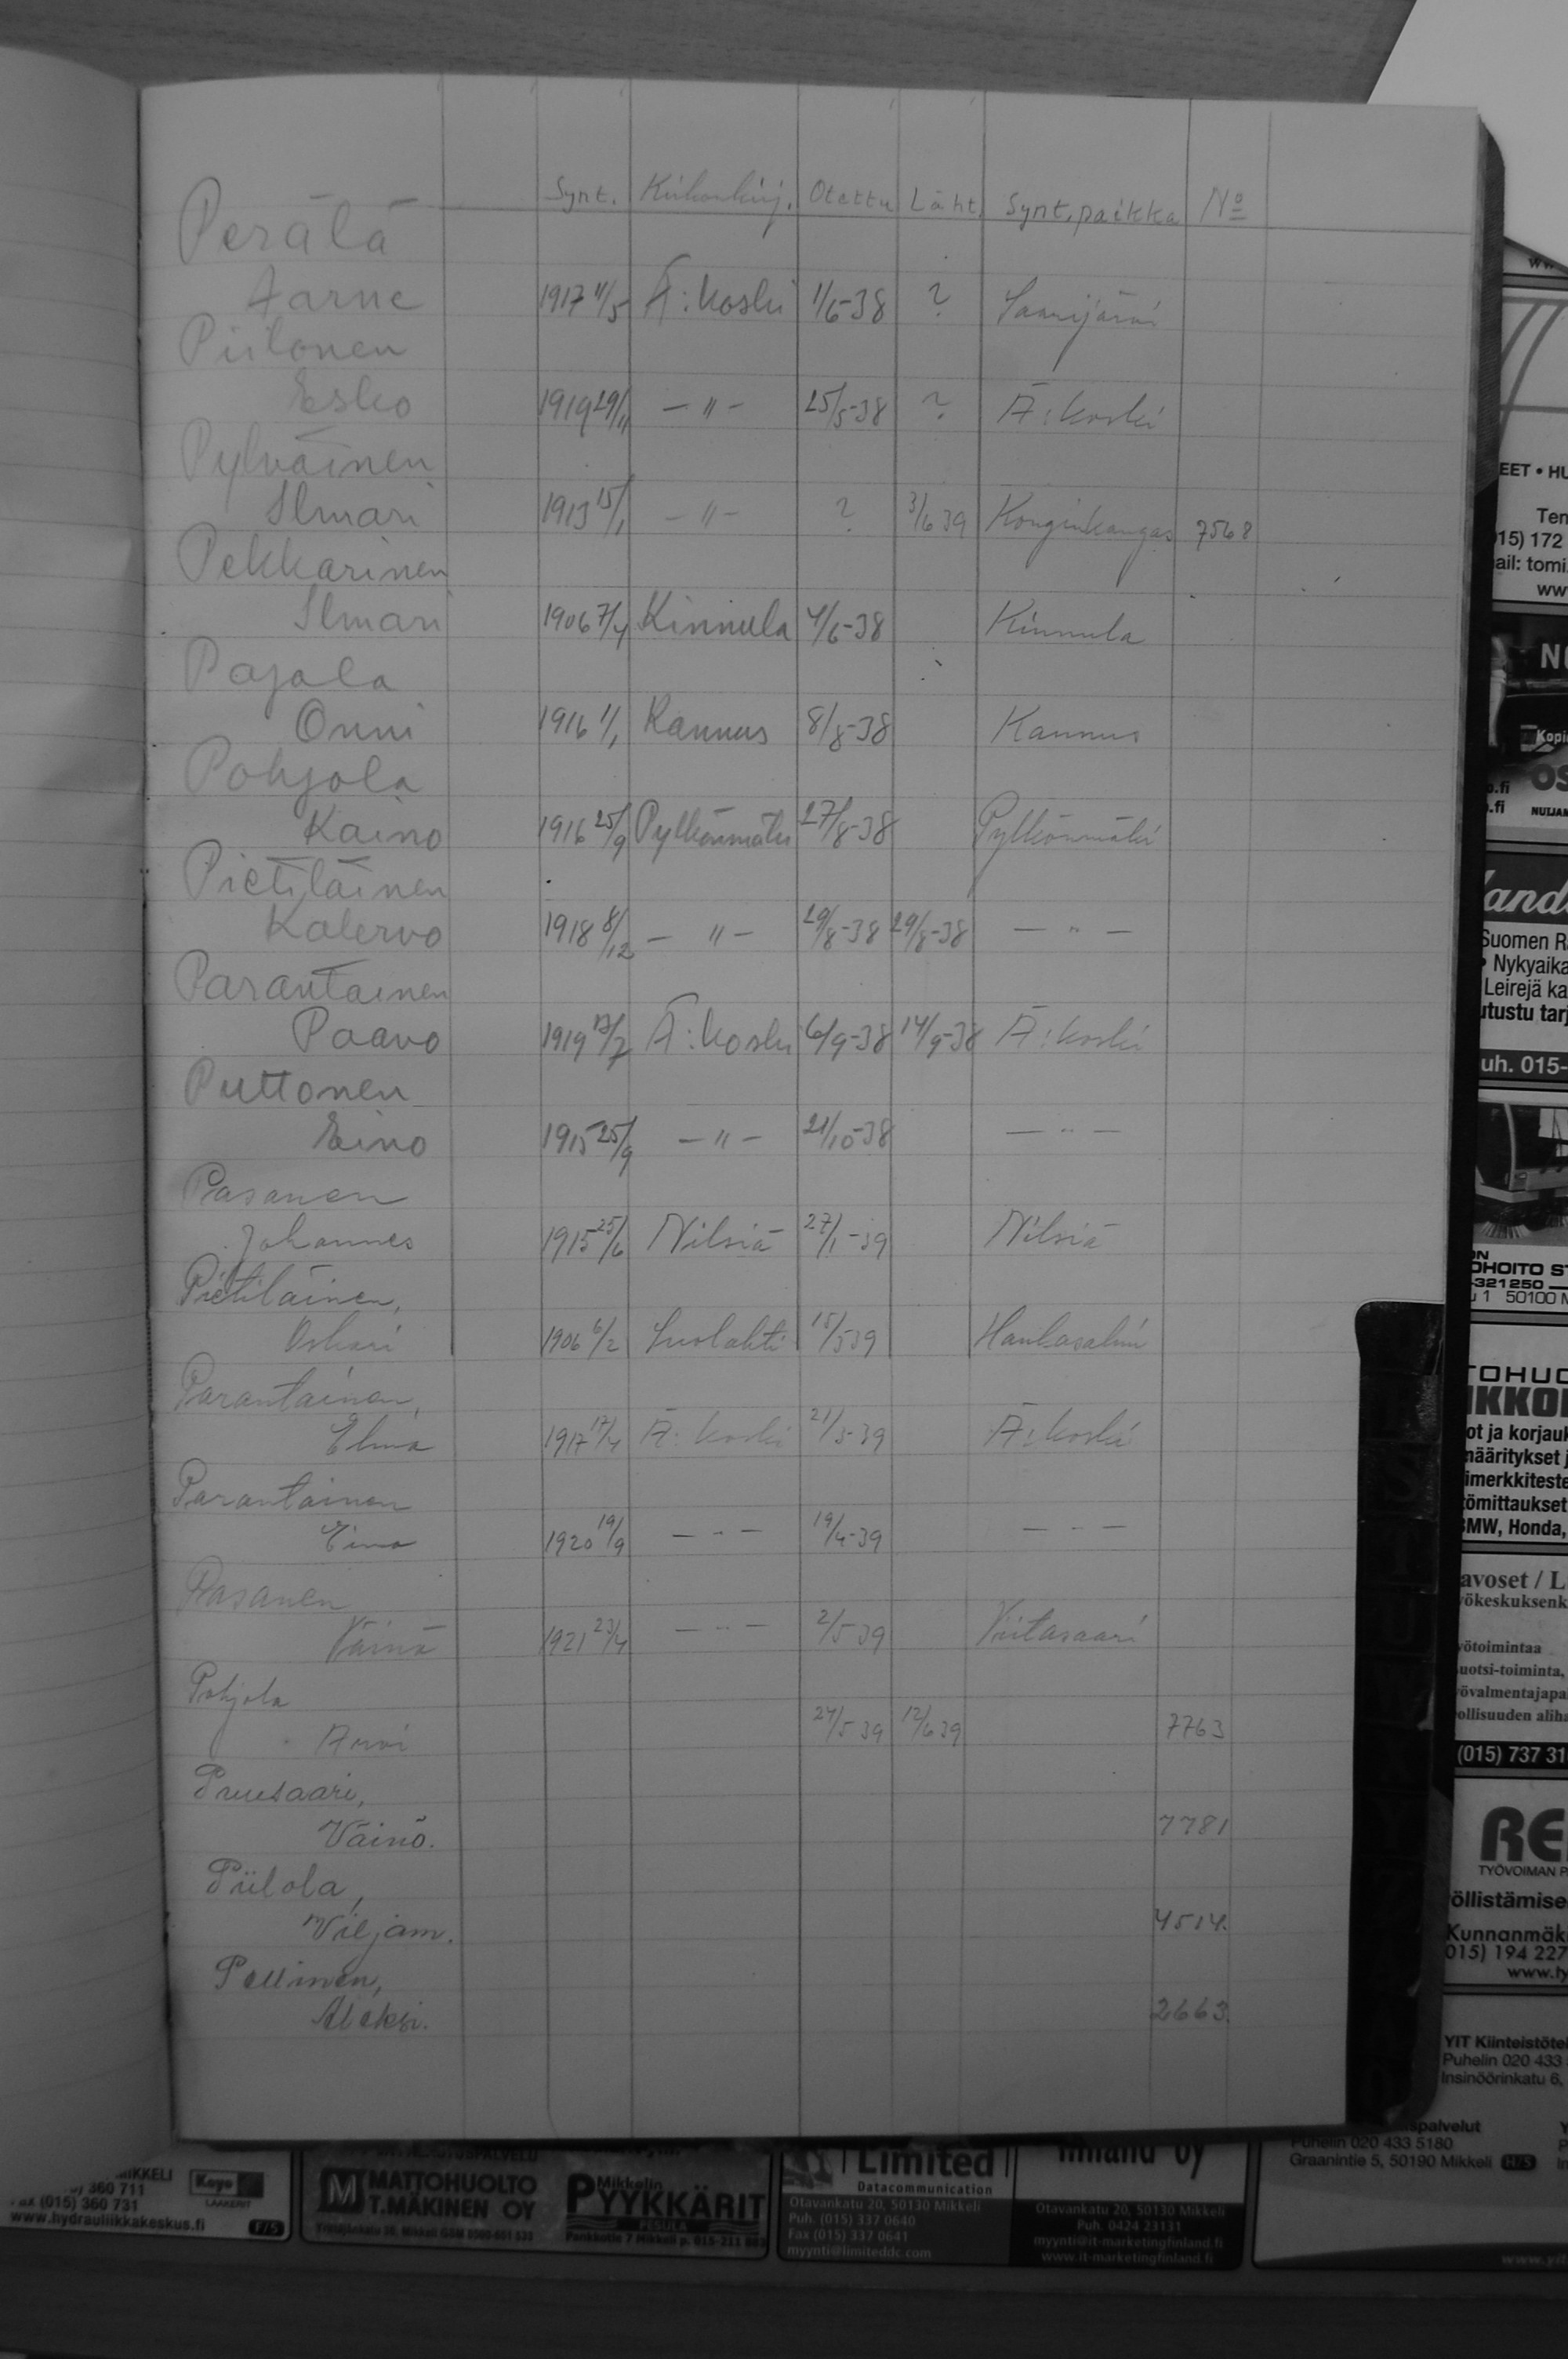 Synt. Kirkonkirj. Otettu Läht. Synt.paikka No
Perälä
Aarne 1917 11/5 Ä:koski 1/6-38 ? Saarijärvi
Piilonen
Esko 1919 29/11 — " — 25/5-38 ? Ä:koski
Pylväinen
Ilmari 1913 15/1 — " — ? 3/6 39 Konginkangas 7568
Pekkarinen
Ilmari 1906 7/4 Kinnula 4/6-38 Kinnula
Pajala
Onni 1916 1/1 Kannus 8/8-38 Kannus
Pohjola
Kaino 1916 25/9 Pylkönmäki 27/8-38 Pylkönmäki
Pietiläinen
Kalervo 1918 8/12 — " — 29/8-38 29/8-38 — " —
Parantainen
Paavo 1919 17/7 Ä:koski 6/9-38 14/9-38 Ä:koski
Puttonen
Eino 1915 25/9 — " — 21/10-38 — " —
Pasanen
Johannes 1915 25/6 Nilsiä 27/1-39 Nilsiä
Pietiläinen,
Oskari 1906 6/2 Suolahti 15/5 39 Hankasalmi
Parantainen,
1917 17/4 Ä:koski 21/3-39 Ä:koski
Parantainen
Eino 1920 19/9 — " — 19/4-39 — " —
Pasanen
Väinö 1921 23/4 — " — 2/5-39 Viitasaari
Pohjola
Arvi 24/5 39 12/6 39 7763
Puusaari,
Väinö. 7781
Piilola,
Viljam. 4514.
Aleksi. 2663.
EET • HU
Ten
15) 172
ail: tomi.
ww
Kopi
OS
.fi
.fi
Suomen R
• Nykyaika
Leirejä ka
utustu tarj
uh. 015-
OHOITO ST
-321250
1 50100 M
TOHUO
IKKO
ot ja korjauk
määritykset j
imerkkiteste
tömittaukset
BMW, Honda,
avoset / L
yökeskuksenk
yötoimintaa
uotsi-toiminta,
yövalmentajapa
ollisuuden aliha
(015) 737 31
RE
TYÖVOIMAN P
öllistämise
Kunnanmäk
015) 194 227
www.ty
YIT Kiinteistötek
Puhelin 020 433
Insinöörinkatu 6,
spalvelut
Puhelin 020 433 5180
Graanintie 5, 50190 Mikkeli H/S
MIKKELI
360 711
Fax (015) 360 731
www.hydrauliikkakeskus.fi F/S
M MATTOHUOLTO
T.MÄKINEN OY
Mikkelin
PYYKKÄRIT
PESULA
Limited
Datacommunication
Otavankatu 20, 50130 Mikkeli
Puh. (015) 337 0640
Fax (015) 337 0641
myynti@limiteddc.com
finland oy
Otavankatu 20, 50130 Mikkeli
Puh. 0424 23131
myynti@it-marketingfinland.fi
www.it-marketingfinland.fi